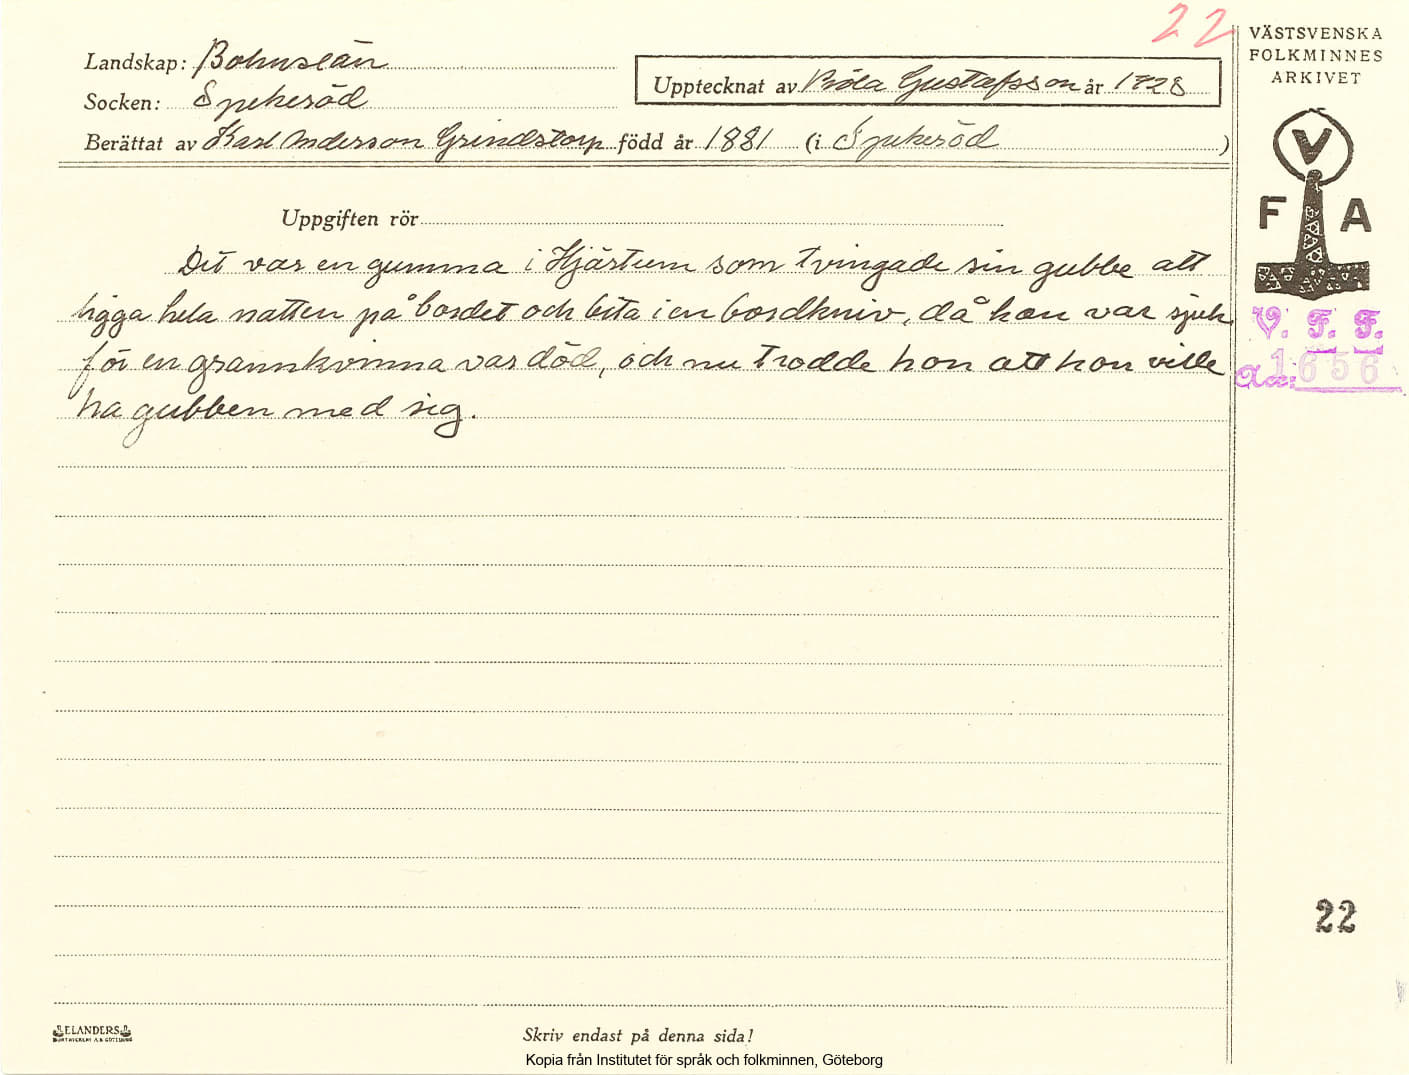 22
VÄSTSVENSKA
FOLKMINNES
ARKIVET
Landskap: Bohuslän
Upptecknat av Gustafsson år 1928
Socken: Spekeröd
Berättat av Karl Anderson Grindstorp född år 1881 (i Spekeröd )
V
F A
Uppgiften rör
Det var en gumma i Hjärtum som tvingade sin gubbe att
ligga hela natten på bordet och bita i en bordkniv, då han var sjuk
för en grannkvinna var död, och nu trodde hon att hon ville
ha gubben med sig.
V. F. F.
Acc: 1656
22
ELANDERS
Skriv endast på denna sida!
Kopia från Institutet för språk och folkminnen, Göteborg